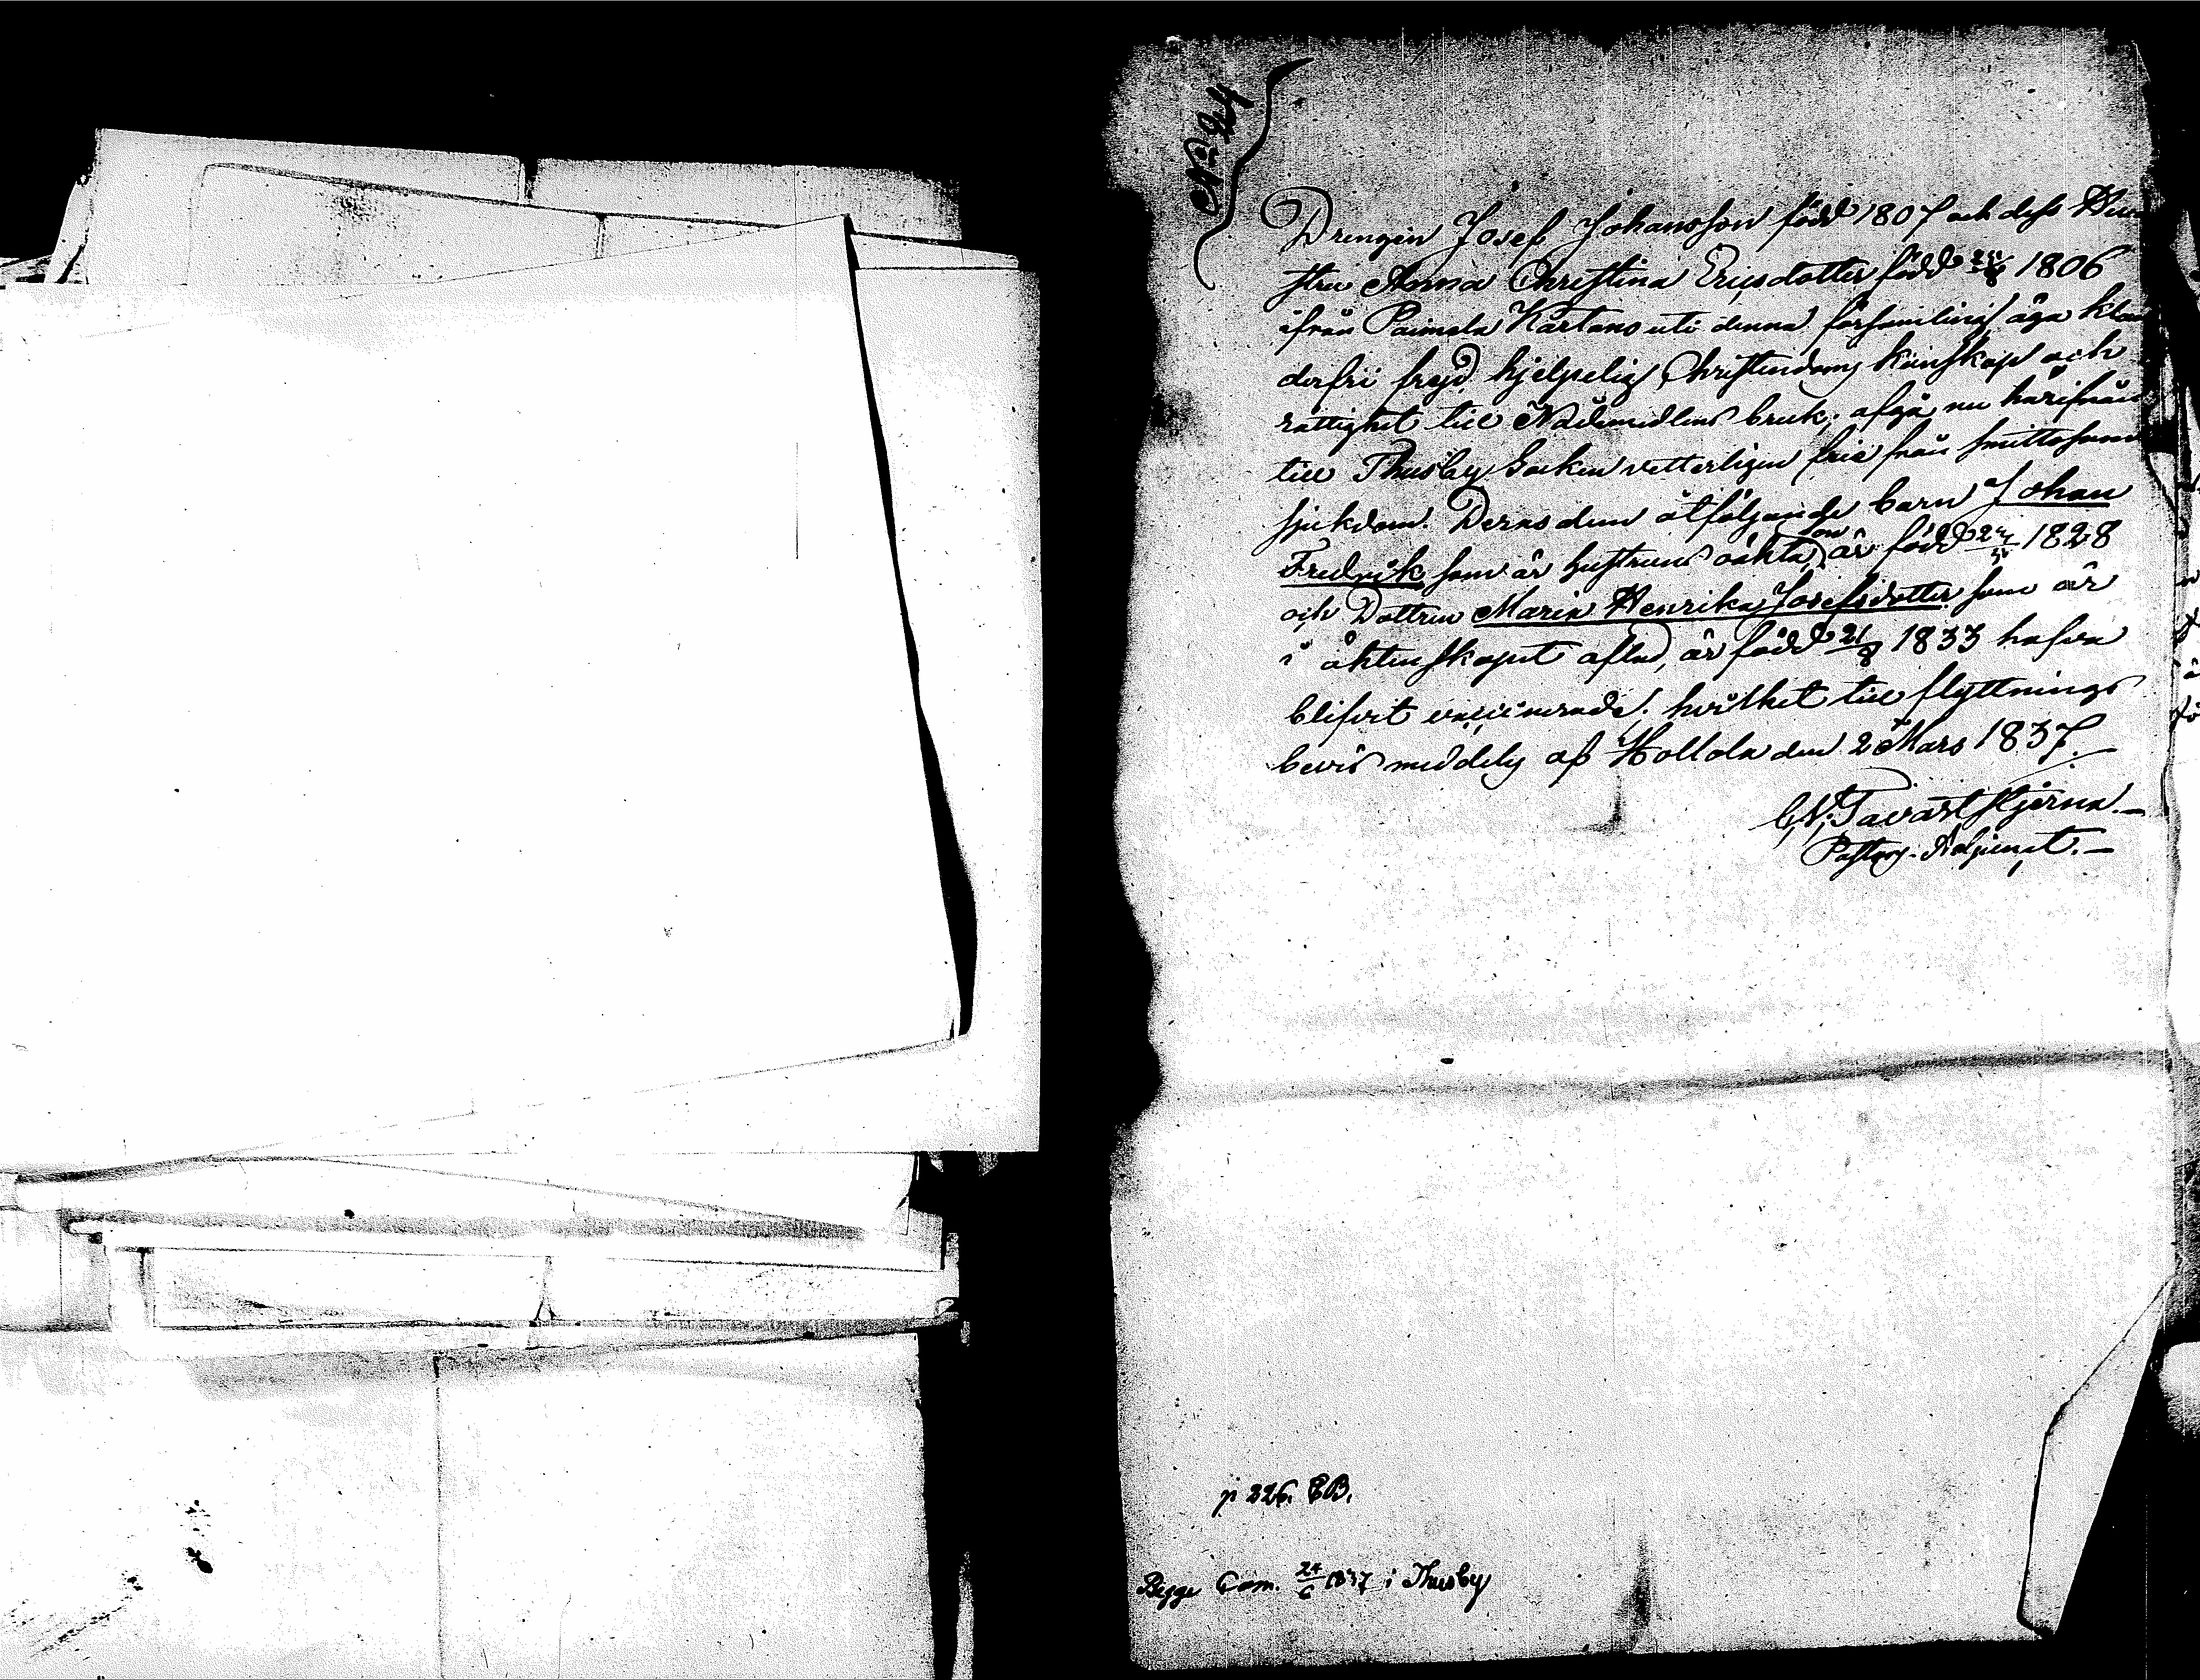 No 24
Drengen Josef Johansson född 1807 och dess Hu-
stru Anna Christina Ericsdotter född 1806
ifrån Paimela Kartano uti denna församling äga klan
derfri frejd hjelpelig Christendoms kunskap och
rättighet till Nådemedlens bruk; afgå nu härifrån
till Thusby Socken vetterligen frie från smittosam
sjukdom. Deras dem åtföljande barn Johan
Fredrik som är hustruns oäkta son är född 1828
och Dottren Maria Henrika Josefsdotter som är
i äktenskapet aflad, är född 21/8 1833 hafva
blifvit vaccinerade; hvilket till flyttnings
bevis meddelas af Hollola den 2 Mars 1837.
C.N. Tavaststjerna.
Pastors-Adjunct.
p 226. CB.
Begge Com. 24/6 1837 i Thusby